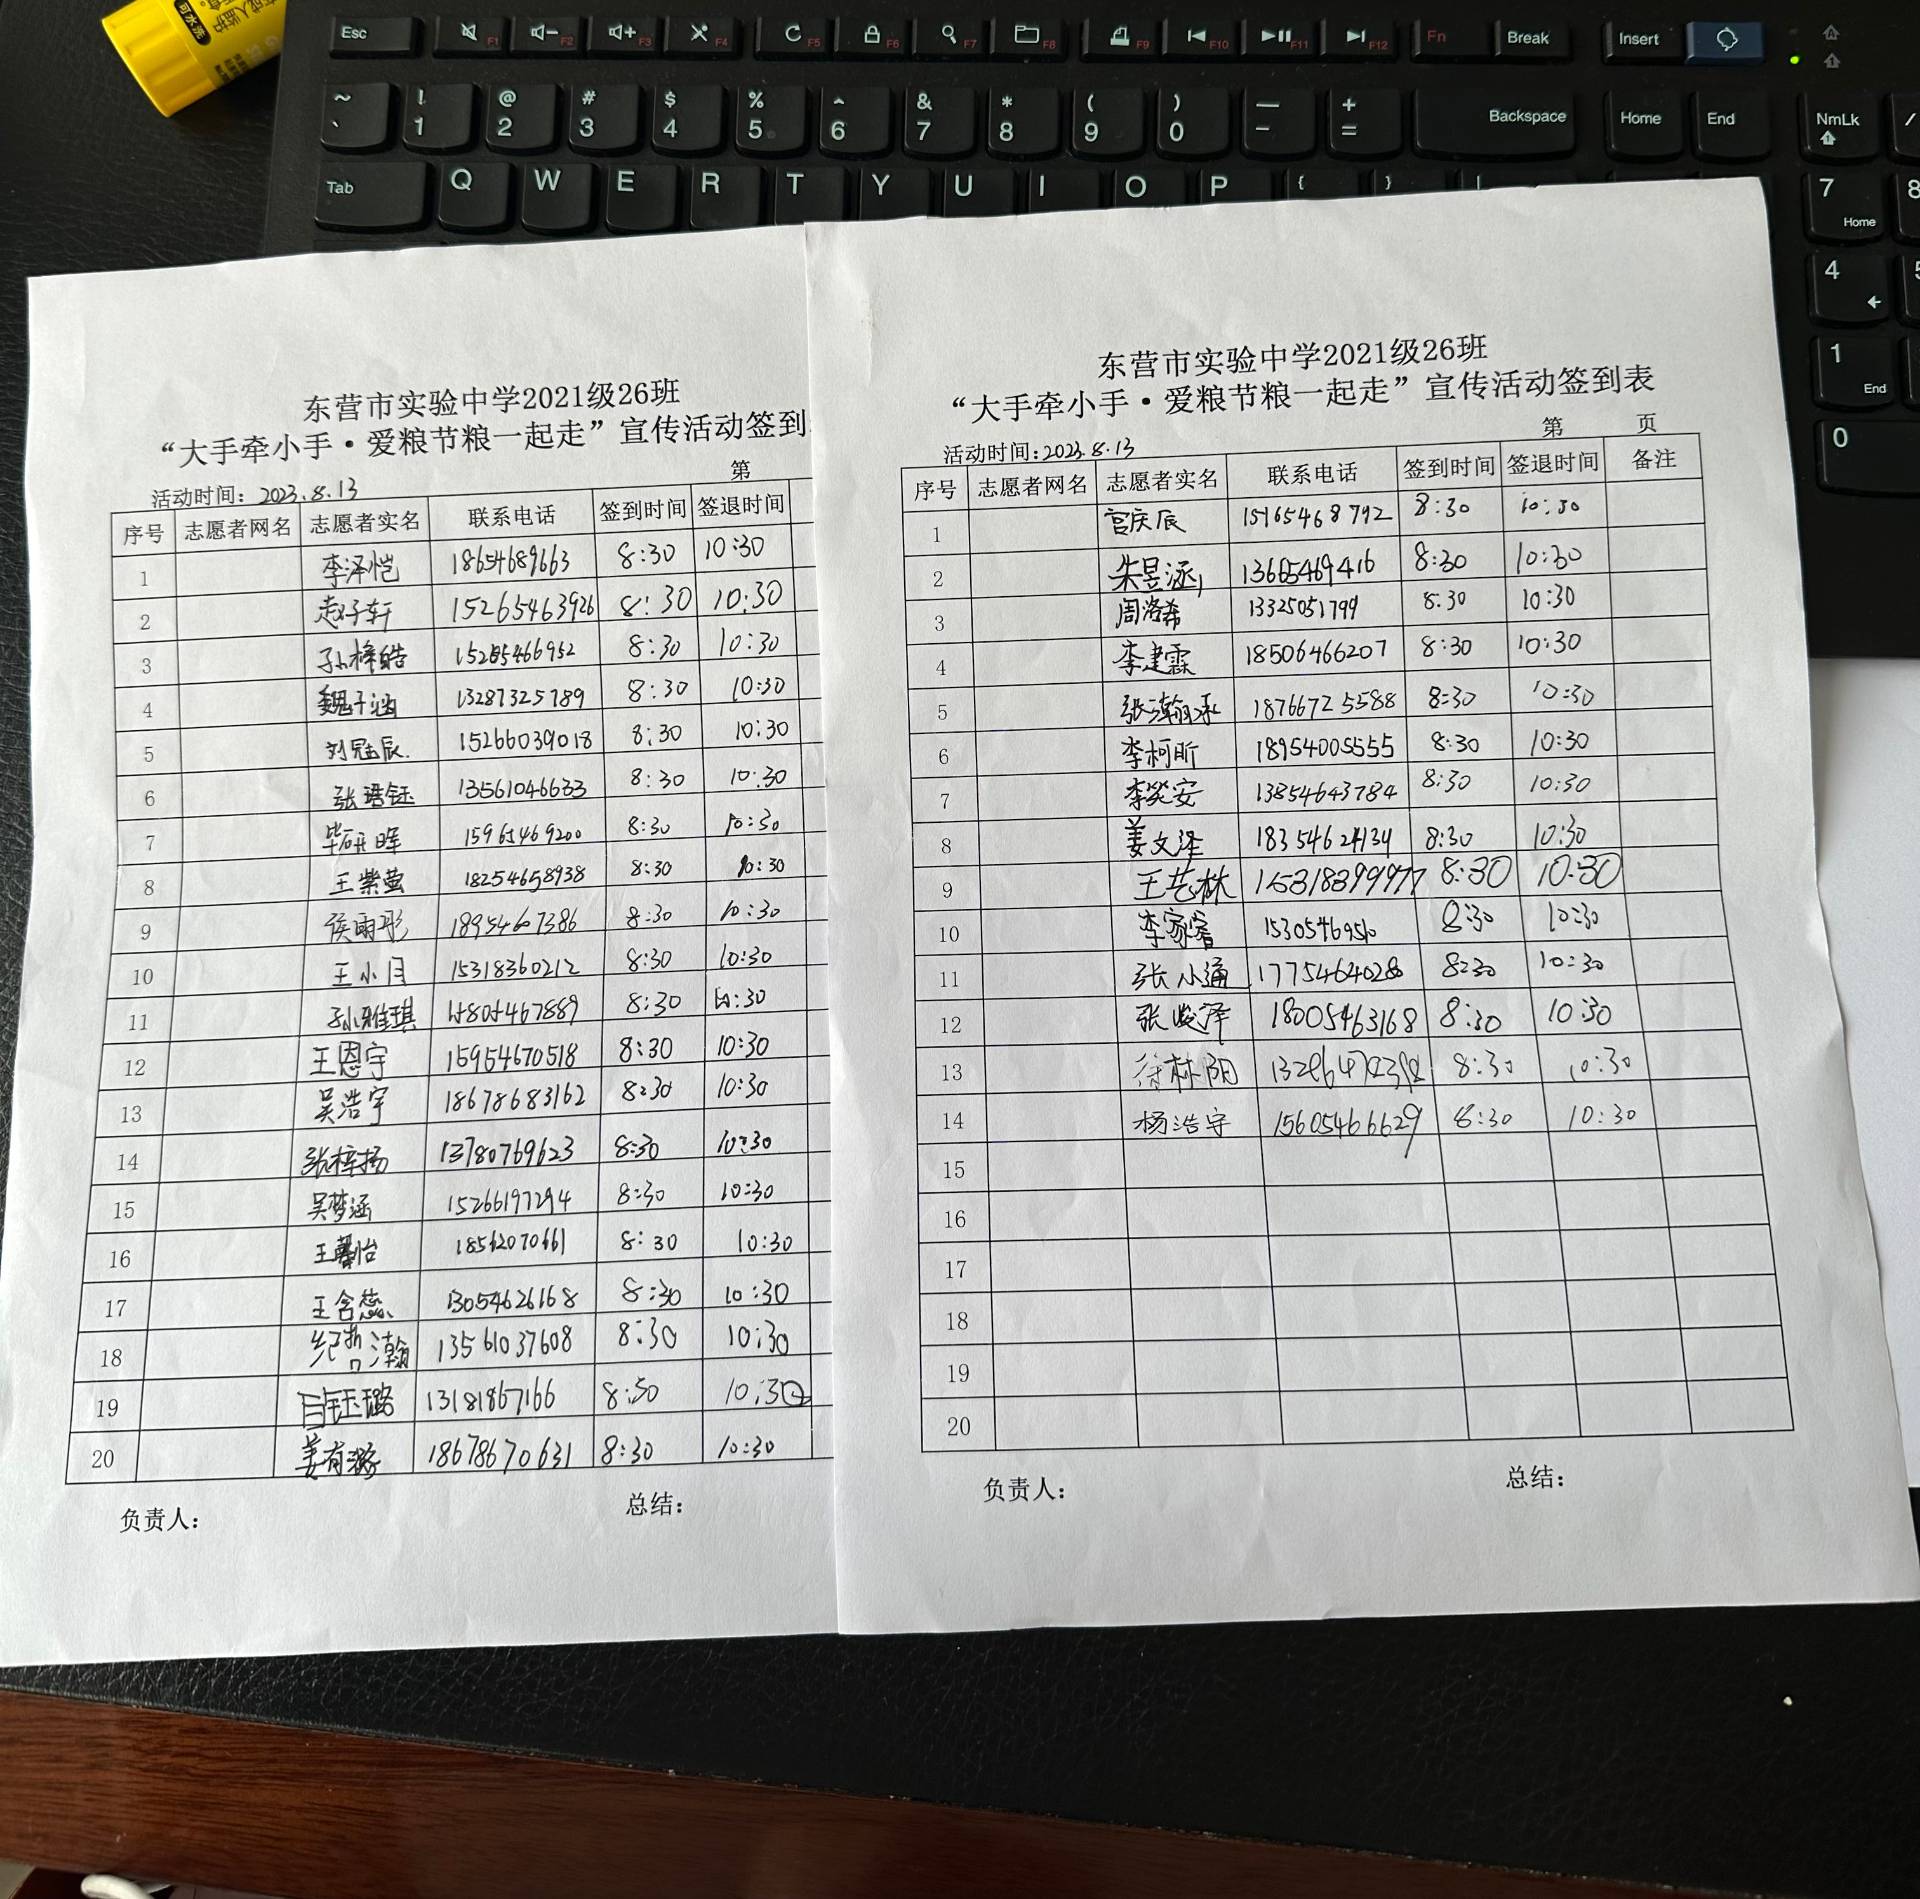 可水洗
Esc F1 F2 F3 F4 F5 F6 F7 F8 F9 F10 F11 F12 Fn Break Insert
~ ` ! 1 @ 2 # 3 $ 4 % 5 ^ 6 & 7 * 8 ( 9 ) 0 — - + = Backspace Home End NmLk /
Tab Q W E R T Y U I O P { } | 7 Home 8
4 5
1 End
0
东营市实验中学2021级26班
“大手牵小手·爱粮节粮一起走”宣传活动签到
第
活动时间：2023.8.13
序号 志愿者网名 志愿者实名 联系电话 签到时间 签退时间
1 李泽恺 18654689663 8:30 10:30
2 赵子轩 15265463926 8:30 10:30
3 孙梓皓 15265466952 8:30 10:30
4 魏子涵 13287325789 8:30 10:30
5 刘冠辰. 15266039018 8:30 10:30
6 张珺钰 13561046633 8:30 10:30
7 毕研晖 15965469200 8:30 10:30
8 王紫萤 18254658938 8:30 10:30
9 侯雨彤 18954607386 8:30 10:30
10 王小月 15318360212 8:30 10:30
11 孙雅琪 15805467889 8:30 10:30
12 王恩宇 15954670518 8:30 10:30
13 吴浩宇 18678683162 8:30 10:30
14 张梓扬 13780769623 8:30 10:30
15 吴梦涵 15266197294 8:30 10:30
16 王馨怡 18562070661 8:30 10:30
17 王含蕊 13054626168 8:30 10:30
18 纪哲瀚 13561037608 8:30 10:30
19 吕钰璐 13181867166 8:50 10:30
20 姜有潞 18678670631 8:30 10:30
负责人： 总结：
东营市实验中学2021级26班
“大手牵小手·爱粮节粮一起走”宣传活动签到表
第 页
活动时间：2023.8.13
序号 志愿者网名 志愿者实名 联系电话 签到时间 签退时间 备注
1 宫庆辰 15165468792 8:30 10:30
2 朱昱涵 13665469416 8:30 10:30
3 周洛希 13325051799 8:30 10:30
4 李建霖 18506466207 8:30 10:30
5 张瀚承 18766725588 8:30 10:30
6 李柯昕 18954005555 8:30 10:30
7 李安 13854643784 8:30 10:30
8 姜文泽 18354624134 8:30 10:30
9 王艺林 15318399977 8:30 10:30
10 李家睿 8:30 10:30
11 张小通 1775464028 8:30 10:30
12 张峻泽 18005463168 8:30 10:30
13 徐林阳 8:30 10:30
14 杨浩宇 15605466629 8:30 10:30
15
16
17
18
19
20
负责人： 总结：